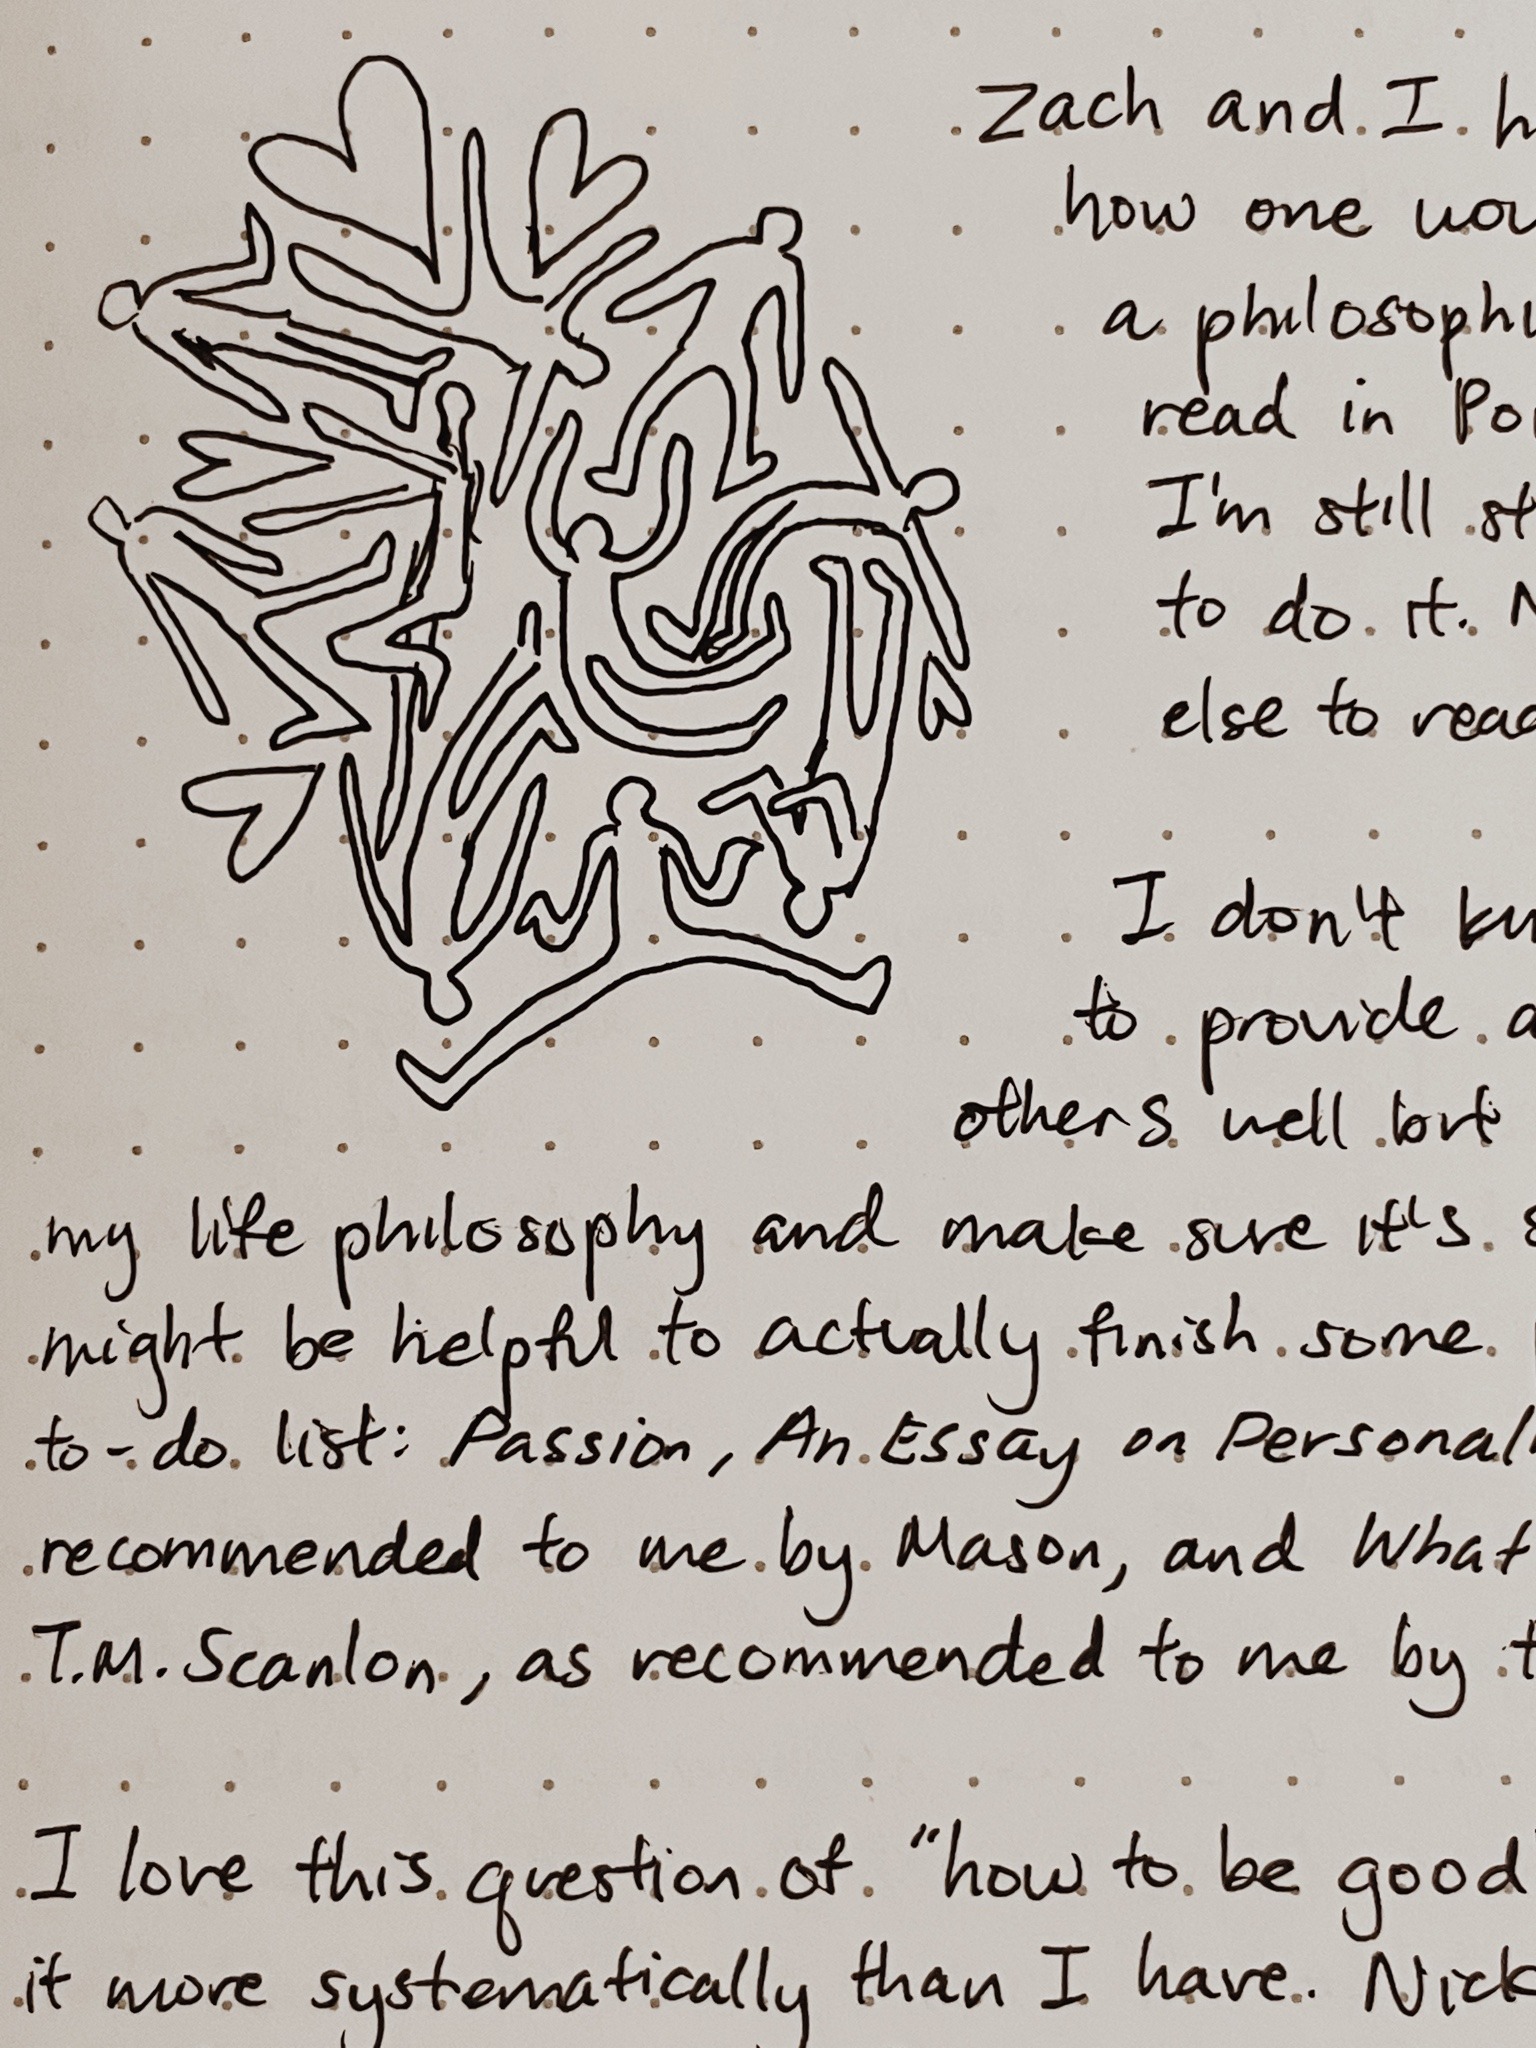 Zach and I
how one
a
read in
I'm still
to do it.
else to
I don't
to provide
others well but
my life philosophy and make sure it's
might be helpful to actually finish some
to-do list: Passion, An Essay on
recommended to me by Mason, and What
T.M. Scanlon, as recommended to me by
I love this question of "how to be good
it more systematically than I have. Nick